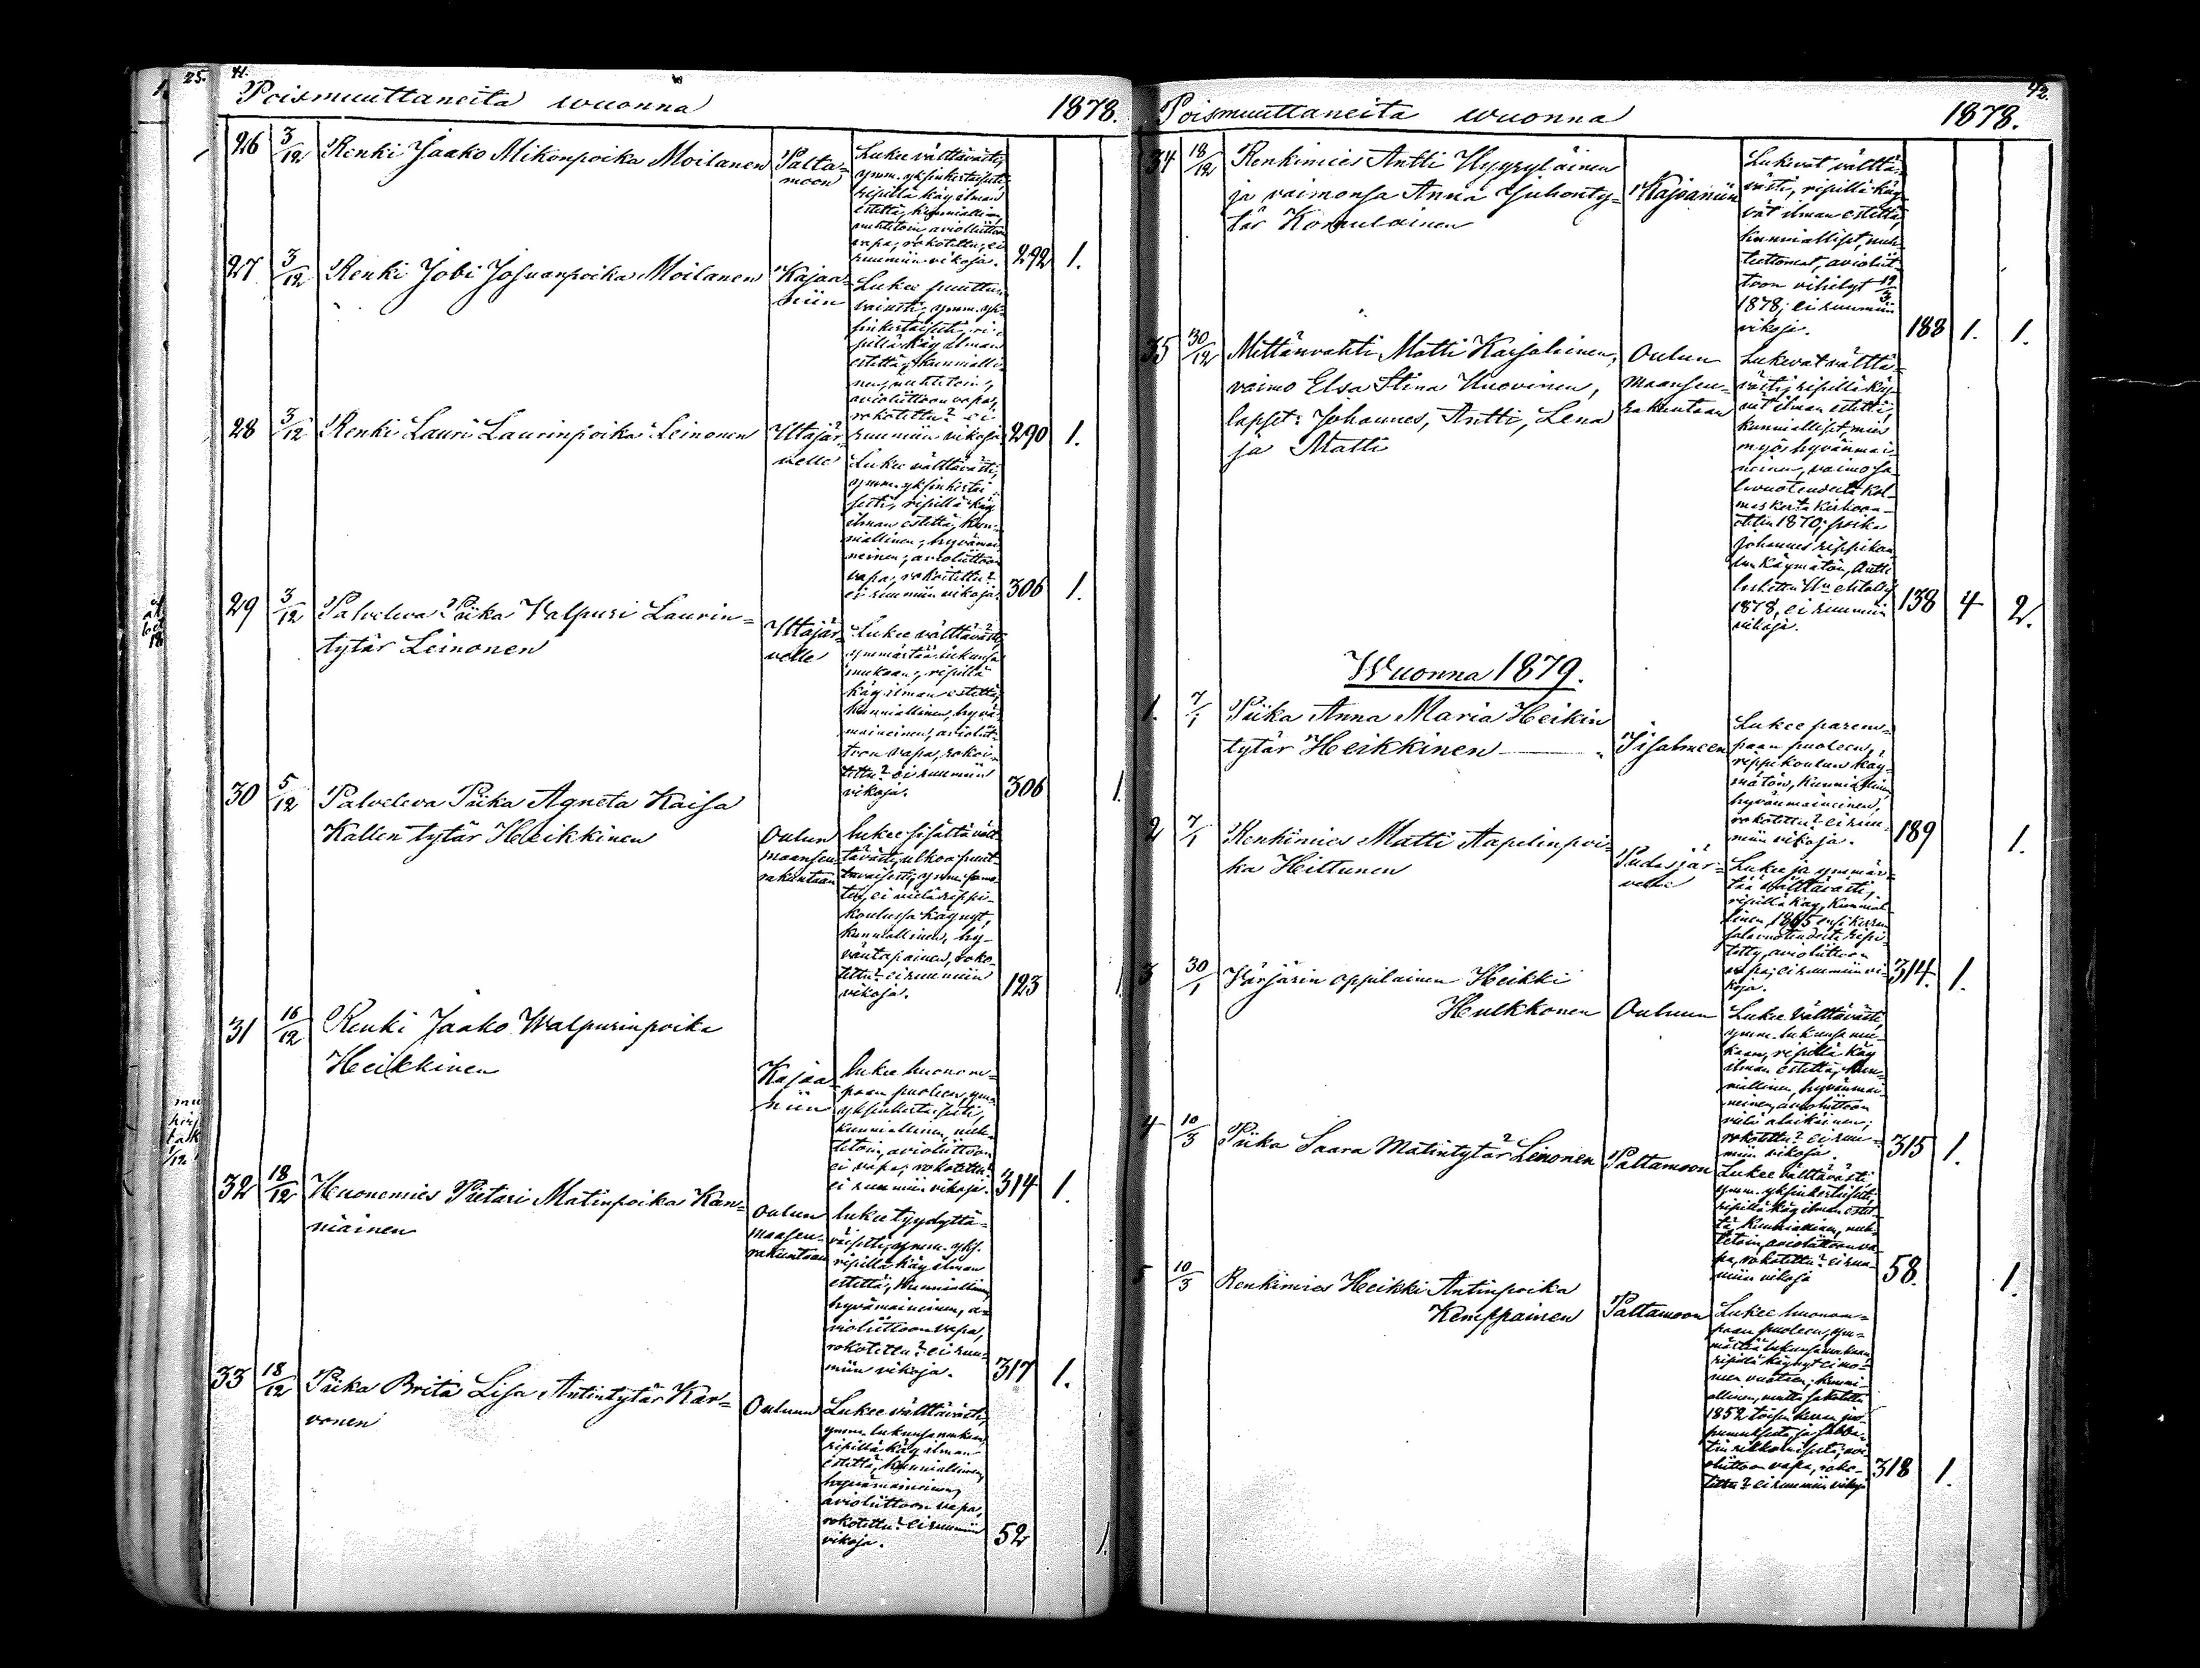 25.
41.
Poismuuttaneita wuonna 1878.
26 3/12 Renki Jaako Mikonpoika Moilanen Palta-
moon
Lukee välttävästi,
ymm. yksinkertaisesti,
ripillä käy ilman
estettä, kunniallinen,
nuhtetoin, avioliittoon
vapa, rokotettu, ei
ruumiin vikoja. 292 1.
27 3/12 Renki Jobi Josuanpoika Moilanen Kajaa-
niin
Lukee puuttu-
vaisesti, ymm. yk-
sinkertaisesti, ri-
pillä käy ilman
estettä, kunnialli-
nen, nuhtetoin,
avioliittoon vapa,
rokotettu? ei
ruumiin vikoja 290 1.
28 3/12 Renki Lauri Laurinpoika Leinonen Uttajär-
velle
Lukee välttävästi,
ymm. yksinkertai-
sesti, ripillä käy
ilman estettä, kun-
niallinen, hyvämai-
neinen, avioliittoon
vapa, rokotettu?
ei ruumiin vikoja. 306 1.
29 3/12 Palveleva Piika Valpuri Laurin-
tytär Leinonen
Uttajär-
velle
Lukee välttävästi,
ymmärtää lukunsa
mukaan, ripillä
käy ilman estettä,
kunniallinen, hyvä-
maineinen, aviolii-
toon vapa, rokoi-
tettu? ei ruumiin
vikoja. 306 1.
30 5/12 Palveleva Piika Agneta Kaisa
Kallen tytär Heikkinen
Oulun
maanseu-
rakuntaan
lukee sisältä vält-
tävästi, ulkoa puut-
tuvaisesti, ymm. sama-
ten, ei vielä rippi-
koulussa käynyt,
kunniallinen, hy-
väntapainen, roko-
tettu? ei ruumiin
vikoja. 123 1.
31 16/12 Renki Jaako Walpurinpoika
Heikkinen
Kajaa-
niin
lukee huonom-
paan puoleen, ymm.
yksinkertaisesti,
kunniallinen, nuh-
tetoin, avioliittoon
ei vapa, rokotettu?
ei ruumiin vikoja. 314 1.
32 18/12 Huonemies Pietari Matinpoika Kan-
niainen
Oulun
maaseu-
rakuntaan
lukee tyydyttä-
väisesti, ymm. yks.
ripillä käy ilman
estettä, kunniallinen,
hyvämaineinen, a-
violiittoon vapa,
rokotettu? ei ruu-
miin vikoja. 317 1.
33 18/12 Piika Brita Lisa Antintytär Kar-
vonen
Ouluun
Lukee välttävästi,
ymm. lukunsa mukaan,
ripillä käy ilman
estettä, kunniallinen,
hyvämaineinen,
avioliittoon vapa,
rokotettu? ei ruumiin
vikoja. 52 1.
42.
Poismuuttaneita wuonna 1878.
34 18/12 Renkimies Antti Hyyryläinen
ja vaimonsa Anna Juhonty-
tär Komulainen
Kajaaniin
Lukevat välttä-
västi, ripillä käy-
vät ilman estettä,
kunnialliset, nuh-
teettomat, avioliit-
toon vihityt 17/3
1878; ei ruumiin
vikoja. 188 1. 1.
35 30/12 Mittänvahti Matti Karjalainen,
vaimo Elsa Stina Huovinen,
lapset: Johannes, Antti, Lena
ja Matti
Oulun
maanseu-
rakuntaan
Lukevat välttä-
västi, ripillä käy-
vät ilman estettä,
kunnialliset, mies
myös hyvänmai-
neinen, vaimo sa-
lavuoteudesta kol-
mas kerta kirkossa
1870; poika
Johannes rippikou-
lun käymätön, Antti
1878, ei ruumiin
vikoja. 138 4 2.
Wuonna 1879.
1. 7/1 Piika Anna Maria Heikin
tytär Heikkinen Iisalmeen
Lukee parem-
paan puoleen,
rippikoulun käy-
mätön, kunniallinen,
hyvänmaineinen,
rokotettu? ei ruu-
miin vikoja. 189 1.
2 7/1 Renkimies Matti Aapelinpoi-
ka Hiltunen
Pudasjär-
velle
Lukee ja ymmär-
tää välttävästi,
ripillä käy, kunnial-
linen, 1865 ensi kerran
salavuoteudesta ripi-
tetty, avioliittoon
vapa; ei ruumiin vi-
koja. 314. 1.
3 30/1 Värjärin oppilainen Heikki
Hulkkonen Ouluun
Lukee välttävästi,
ymm. lukunsa mu-
kaan, ripillä käy
ilman estettä, kun-
niallinen, hyvänmai-
neinen, avioliittoon
vielä alaikäinen;
rokotettu? ei ruu-
miin vikoja. 315 1.
4 10/3 Piika Saara Matintytär Leinonen Paltamoon
Lukee välttävästi,
ymm. yksinkertaisesti,
ripillä käy ilman estet-
tä, kunniallinen, nuh-
tetoin, avioliittoon va-
pa, rokotettu? ei ruu-
miin vikoja 58. 1.
5 10/3 Renkimies Heikki Antinpoika
Kemppainen Paltamoon
Lukee huonom-
paan puoleen, ym-
märtää lukunsa mukaan,
ripillä käynyt ei mo-
neen vuoteen, kunni-
allinen, mutta sakotettu
1852 toisen kerran juo-
pumuksesta, ja sabba-
tin rikkomisesta; avi-
oliittoon vapa, roko-
tettu? ei ruumiin vikoja 318 1.